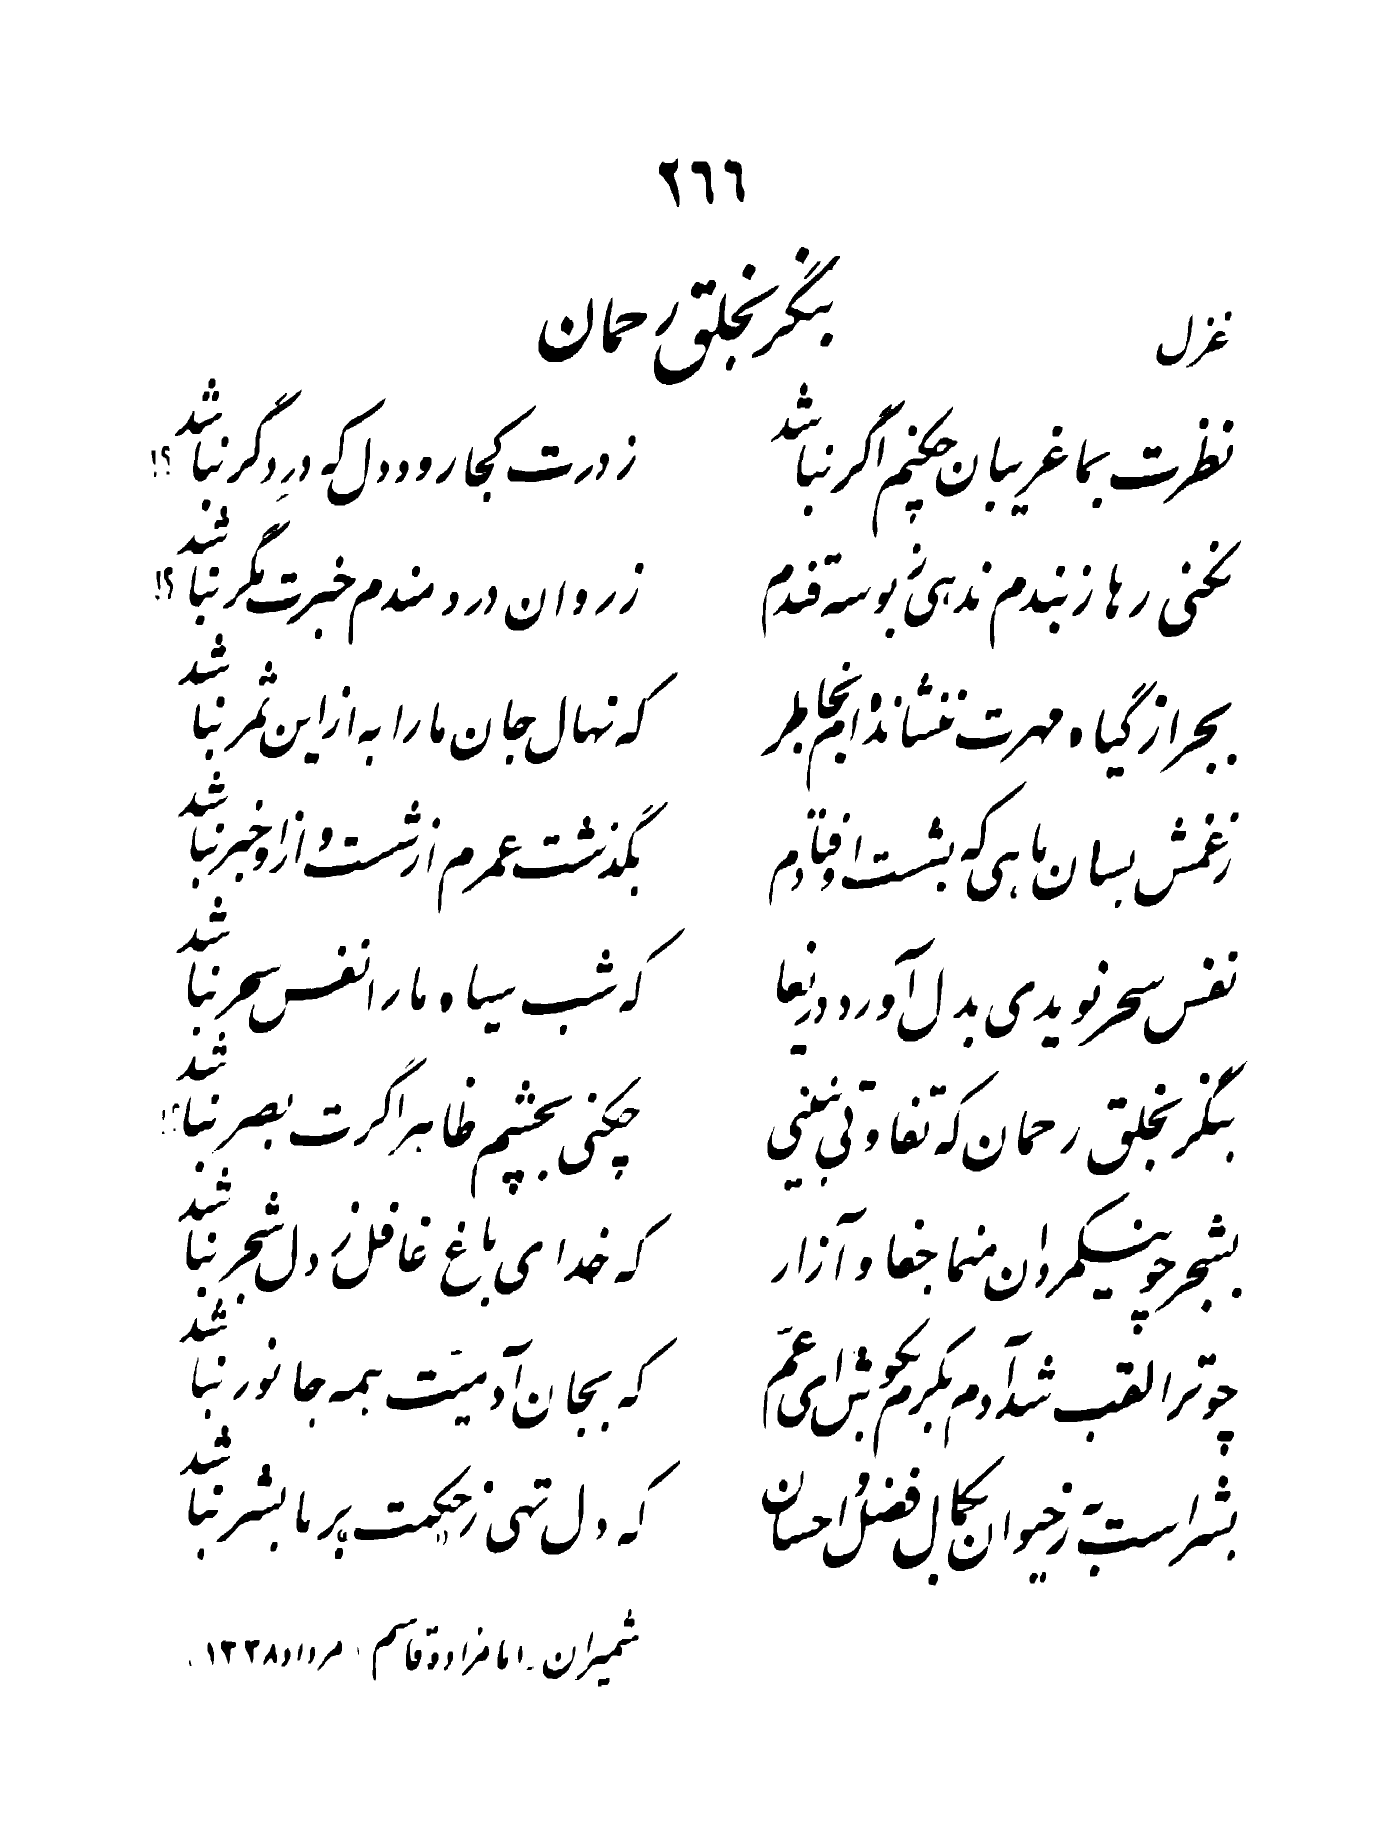 ٢٦٦
بنگر بخلق رحمان
غزل
نظرت بما غریبان چکنم اگر نباشد
ز درت کجا رود دل که درِ دگر نباشد ؟!
نکنی رها ز بندم ندهی ز بوسه قندم
ز روان دردمندم خبرت مگر نباشد ؟!
بجز از گیاه مهرت ننشانده‌ام بخاطر
که نهال جان ما را به از این ثمر نباشد
ز غمش بسان ماهی که بشست اوفتادم
بگذشت عمرم از شست و از او خبر نباشد
نفس سحر نویدی بدل آورد دریغا
که شب سیاه ما را نفس سحر نباشد
بنگر بخلق رحمان که تفاوتی نبینی
چکنی بچشم ظاهر اگرت بصر نباشد ؟!
بشجر چو نیکمردان منما جفا و آزار
که خدای باغ غافل ز دل شجر نباشد
چو ترا لقب شد آدم بکرم بکوش ای عمّ
که بجان آدمیّت همه جانور نباشد
بشر است به ز حیوان بکمال فضل و احسان
که دل تهی ز حکمت بر ما بشر نباشد
شمیران - امامزاده قاسم مرداد ١٣٣٨